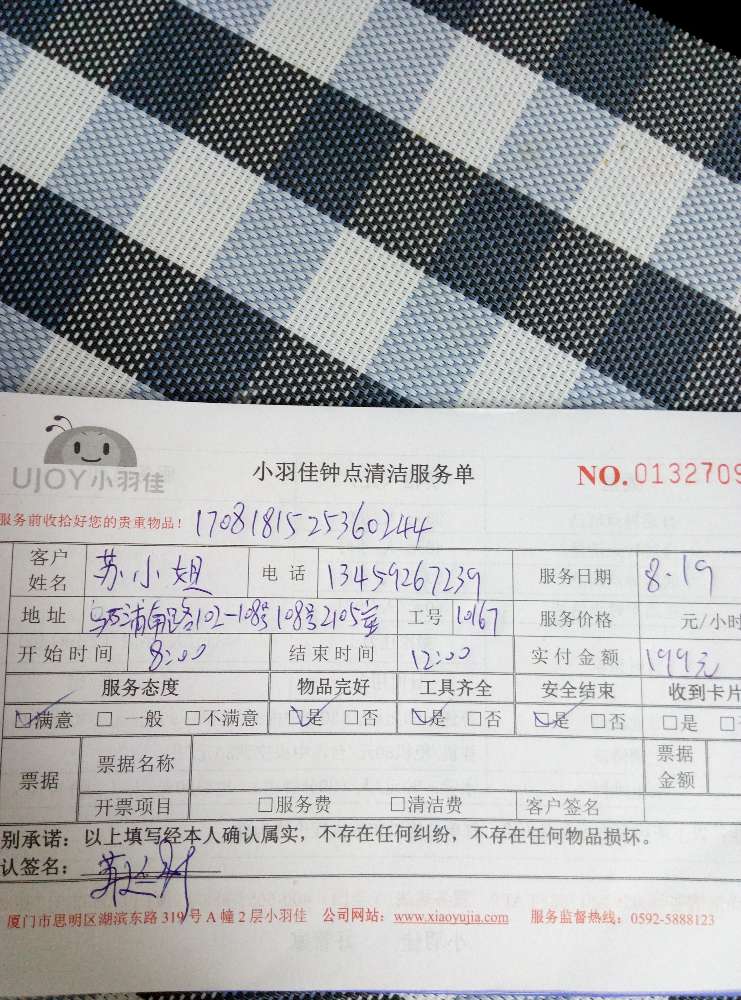 UJOY小羽佳
小羽佳钟点清洁服务单
NO.0132709
服务前收拾好您的贵重物品! 1708181525360244
客户姓名 苏小姐 电话 13459267239 服务日期 8.19
地址 浦南路102-108号108号2105室 工号 10167 服务价格 元/小时
开始时间 8:00 结束时间 12:00 实付金额 199元
服务态度 物品完好 工具齐全 安全结束 收到卡片
☑满意 □ 一般 □不满意 ☑是 □否 ☑是 □否 ☑是 □否 □是 □
票据 票据名称 票据金额
开票项目 □服务费 □清洁费 客户签名
别承诺:以上填写经本人确认属实,不存在任何纠纷,不存在任何物品损坏。
认签名:
厦门市思明区湖滨东路 319 号 A 幢 2 层小羽佳 公司网站:www.xiaoyujia.com 服务监督热线:0592-5888123